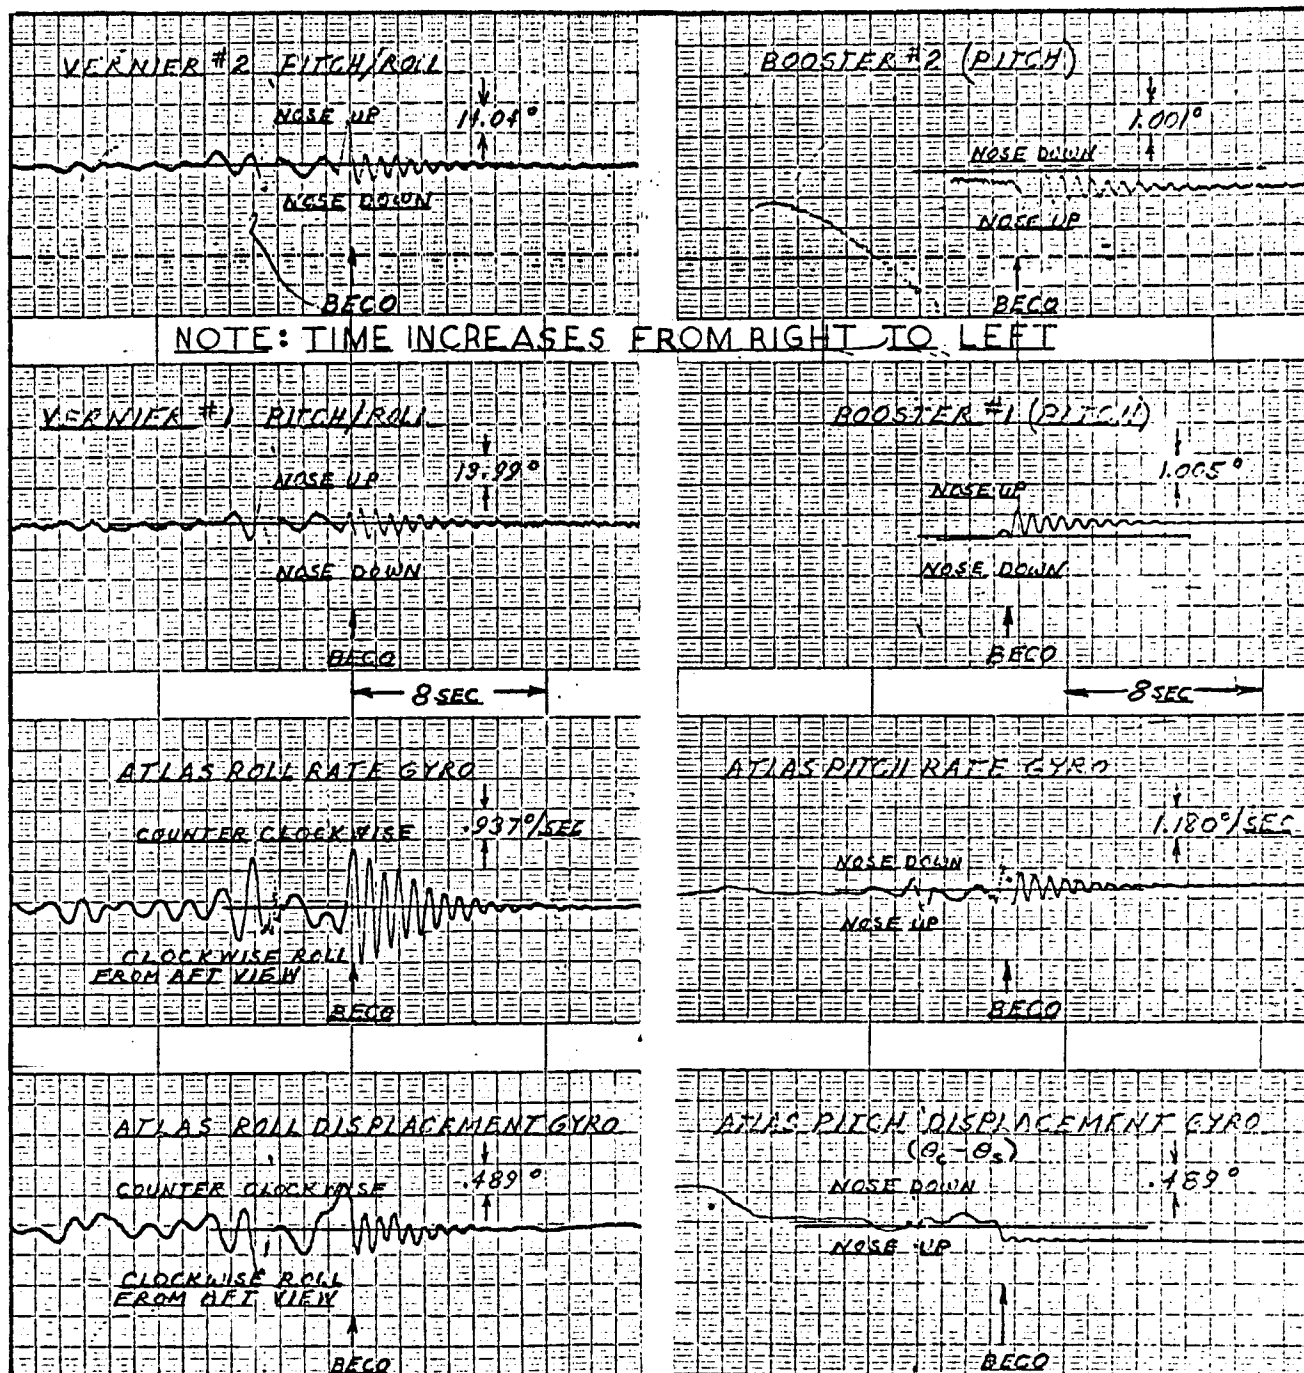 VERNIER #2 PITCH/ROLL
NOSE UP
14.04°
NOSE DOWN
BECO
BOOSTER #2 (PITCH)
1.001°
NOSE DOWN
NOSE UP
BECO
NOTE: TIME INCREASES FROM RIGHT TO LEFT
VERNIER #1 PITCH/ROLL
NOSE UP
13.99°
NOSE DOWN
BECO
BOOSTER #1 (PITCH)
1.005°
NOSE UP
NOSE DOWN
BECO
8 SEC
8 SEC
ATLAS ROLL RATE GYRO
COUNTER CLOCKWISE
.937°/SEC
CLOCKWISE ROLL
FROM AFT VIEW
BECO
ATLAS PITCH RATE GYRO
1.180°/SEC
NOSE DOWN
NOSE UP
BECO
ATLAS ROLL DISPLACEMENT GYRO
COUNTER CLOCKWISE
.489°
CLOCKWISE ROLL
FROM AFT VIEW
BECO
ATLAS PITCH DISPLACEMENT GYRO
(θc - θs)
NOSE DOWN
.489°
NOSE UP
BECO